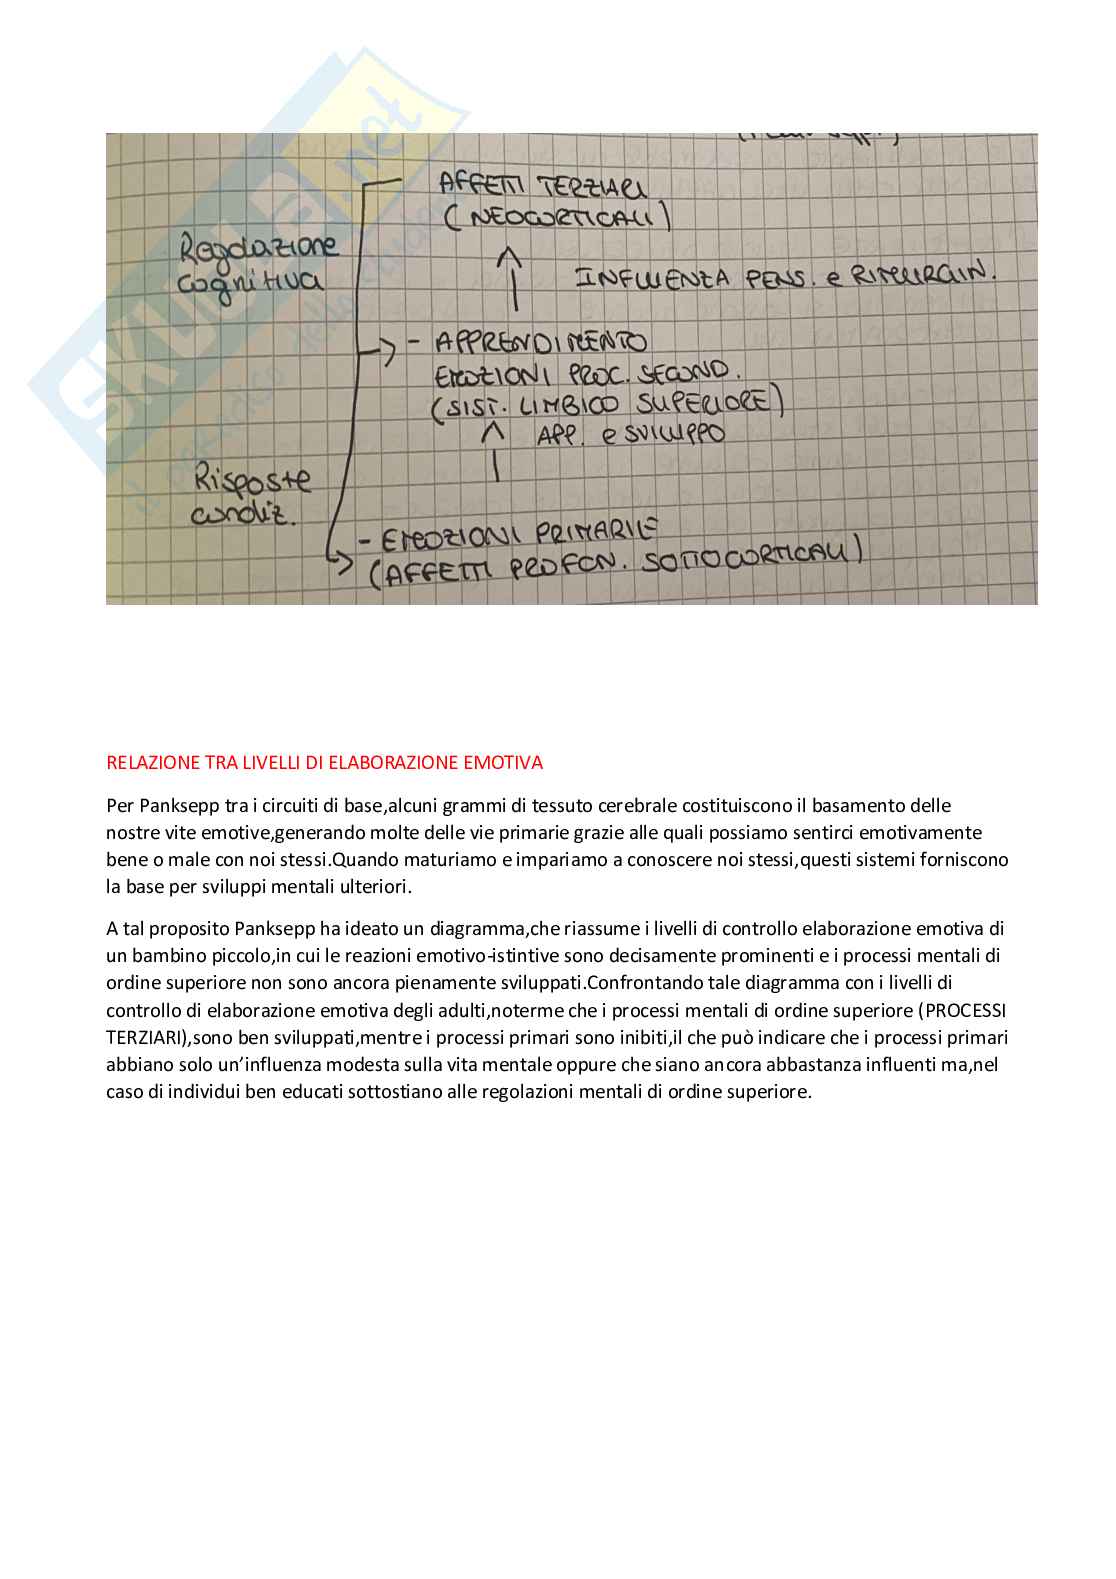 AFFETTI TERZIARI
(NEOCORTICALI)
Regolazione
cognitiva
INFLUENZA PENS. e RIMURGIN.
- APPRENDIMENTO
EMOZIONI PROC. SECOND.
(SIST. LIMBICO SUPERIORE)
APP. e SVILUPPO
Risposte
condiz.
- EMOZIONI PRIMARIE
(AFFETTI PROFON. SOTTOCORTICALI)
SKUOLA.net
RELAZIONE TRA LIVELLI DI ELABORAZIONE EMOTIVA
Per Panksepp tra i circuiti di base,alcuni grammi di tessuto cerebrale costituiscono il basamento delle
nostre vite emotive,generando molte delle vie primarie grazie alle quali possiamo sentirci emotivamente
bene o male con noi stessi.Quando maturiamo e impariamo a conoscere noi stessi,questi sistemi forniscono
la base per sviluppi mentali ulteriori.
A tal proposito Panksepp ha ideato un diagramma,che riassume i livelli di controllo elaborazione emotiva di
un bambino piccolo,in cui le reazioni emotivo-istintive sono decisamente prominenti e i processi mentali di
ordine superiore non sono ancora pienamente sviluppati.Confrontando tale diagramma con i livelli di
controllo di elaborazione emotiva degli adulti,noterme che i processi mentali di ordine superiore (PROCESSI
TERZIARI),sono ben sviluppati,mentre i processi primari sono inibiti,il che può indicare che i processi primari
abbiano solo un’influenza modesta sulla vita mentale oppure che siano ancora abbastanza influenti ma,nel
caso di individui ben educati sottostiano alle regolazioni mentali di ordine superiore.